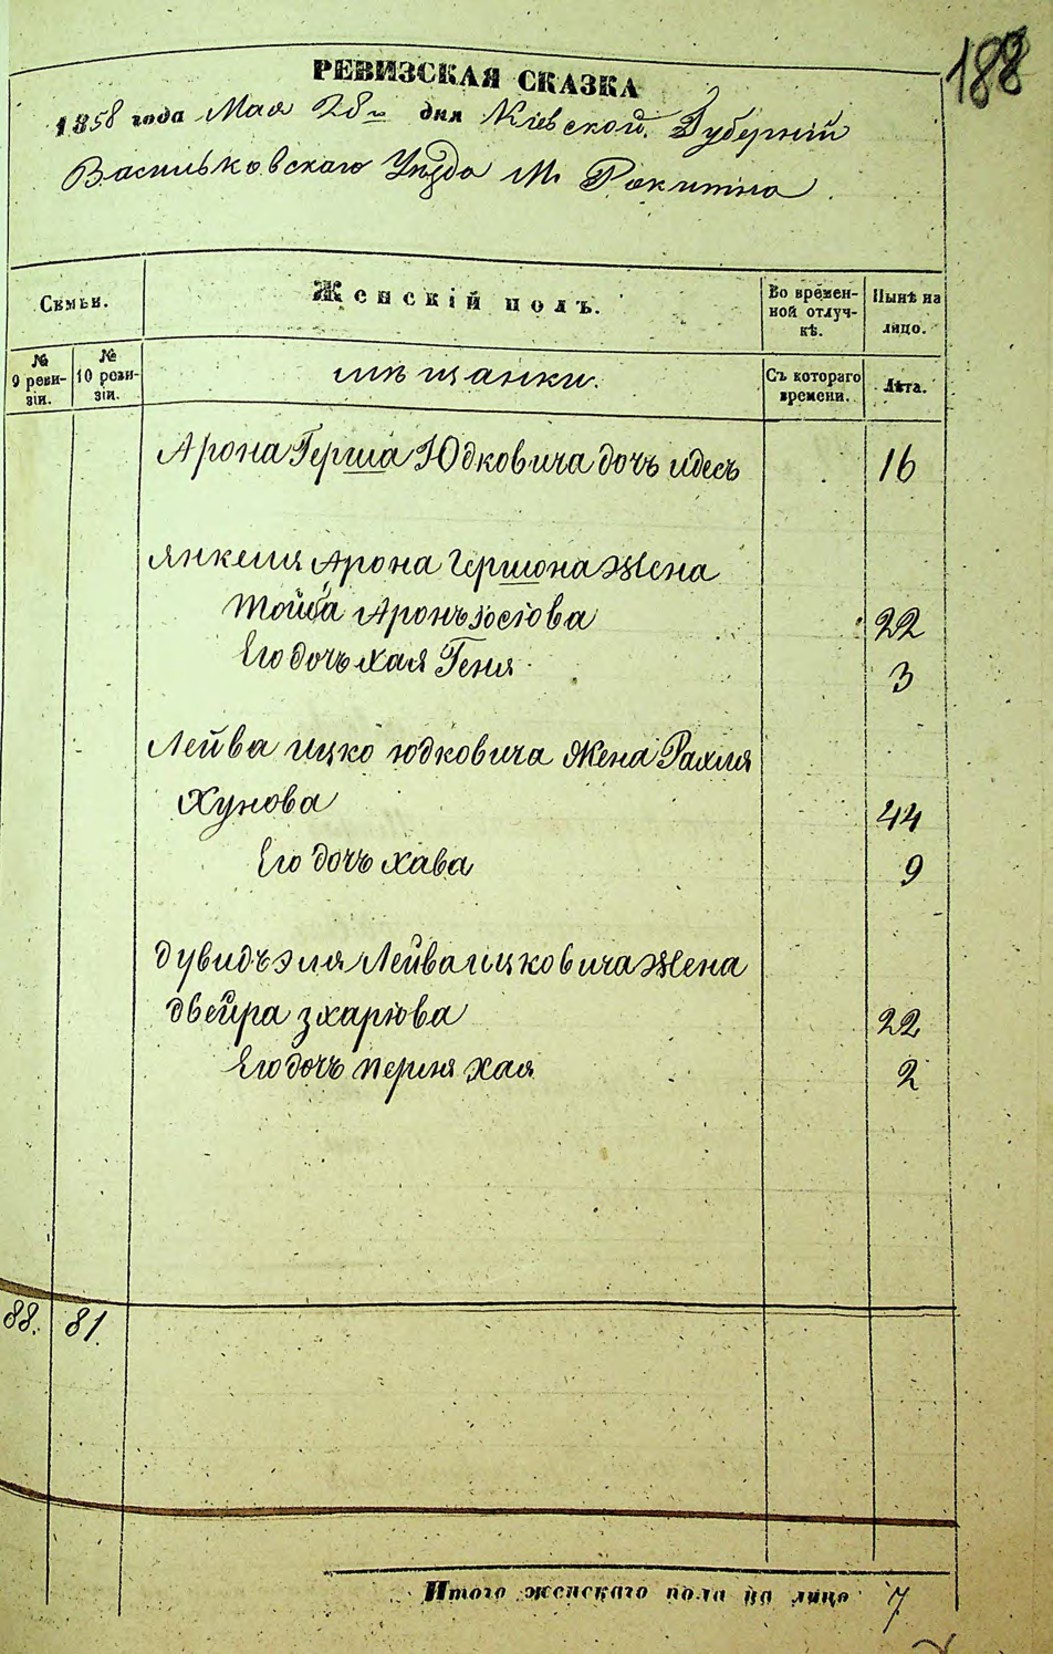 188
РЕВИЗСКАЯ СКАЗКА
1858 года Мая 28го дня Кіевской Губерніи
Васильковскаго Уѣзда М. Ракитна
Семьи.
Женскій полъ.
Во времен-
ной отлуч-
кѣ.
Нынѣ на
лицо.
№
9 реви-
зіи.
№
10 реви-
зіи.
мѣщанки.
Съ котораго
времени.
Лѣта.
Арона Герша Юдковича дочь идесъ 16
Янкеля Арона Гершона жена
Аронъ 22
Его дочь хая Геня 3
Лейба ицко юдковича жена Рахля
Хунова 44
Его дочь хава 9
дувидъ эля Лейба ицковича жена
двейра зхаріова 22
Его дочь перля хая 2
88. 81.
Итого женскаго пола на лицо 7